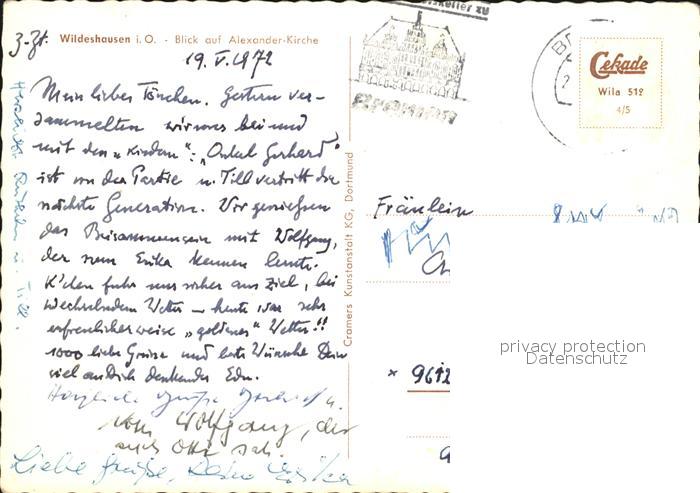 z. Zt. Wildeshausen i. O. - Blick auf Alexander-Kirche
19. V. 1972
Mein liebes Tönchen. Gestern ver-
sammelten wir uns bei und
mit den "Kindern": "Onkel Gerhard"
ist von der Partie u. Till vertritt die
nächste Generation. Wir geniessen
das Beisammensein mit Wolfgang,
der nun Erika kennen lernte.
K'chen fuhr uns sicher ans Ziel, bei
wechselndem Wetter – heute war sehr
erfreulicherweise "goldenes" Wetter!!
1000 liebe Grüsse und beste Wünsche Dein
viel an Dich denkender Edu.
Herzliche Grüße Gerhard u.
Wolfgang, der
auch
Liebe Grüße, Deine Erika
u. Till.
Cramers Kunstanstalt KG, Dortmund
Cekade
Wila 512
4/5
Fräulein
* 9612
privacy protection
Datenschutz